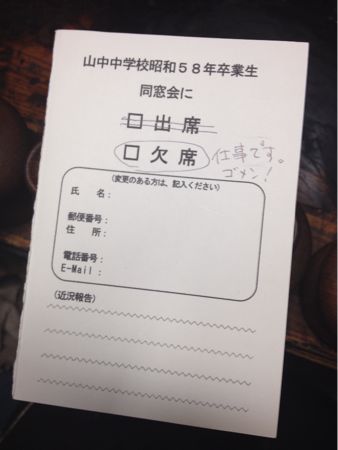 山中中学校昭和58年卒業生
同窓会に
□ 出席
□ 欠席 仕事です。
ゴメン!
(変更のある方は、記入ください)
氏 名:
郵便番号:
住 所:
電話番号:
E-Mail:
(近況報告)